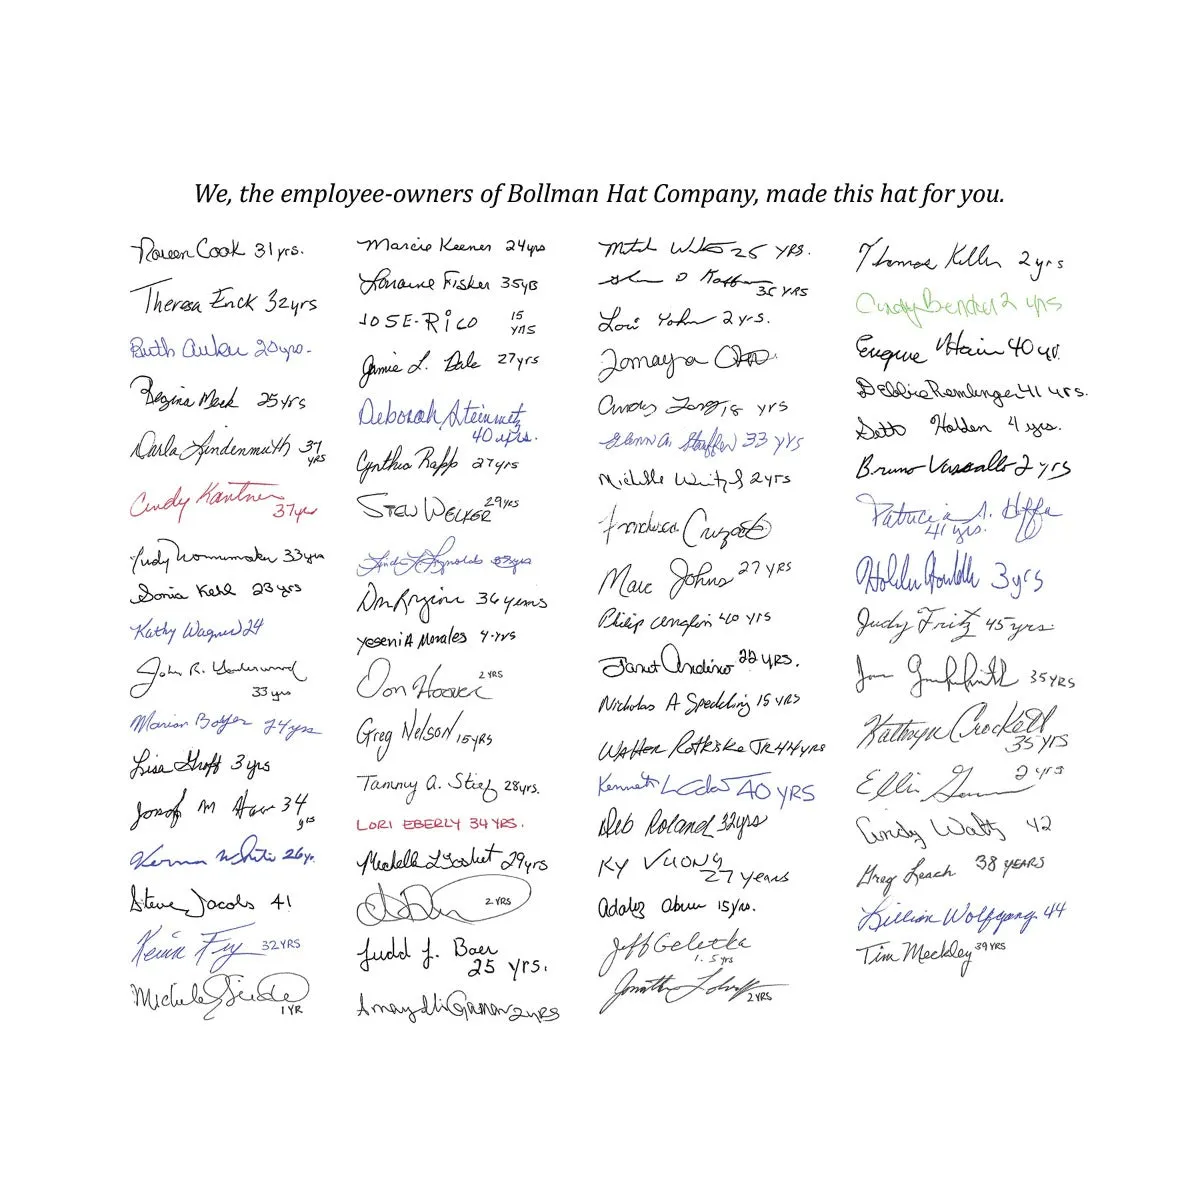 We, the employee-owners of Bollman Hat Company, made this hat for you.
Noreen Cook 31 yrs.
Theresa Enck 32 yrs
Ruth Auker 20 yrs.
Regina Meck 25 yrs
Darla Lindenmuth 37
YRS
Cindy Kantner
37 yrs
Judy 33 yrs
Sonia Kehl 23 yrs
Kathy Wagner 24
John R. Underwood
33 yrs
Marian Boyer 24 yrs
Lisa Groff 3 yrs
Josef M 34
yrs
26 yr.
Steve Jacobs 41
Kevin Fry 32 YRS
Michele
1 YR
Marcie Keener 24 yrs
Lorraine Fisher 35 yrs
JOSE-RICO 15
yrs
Jamie L. Dale 27 yrs
Deborah Steinmetz
40 yrs.
Cynthia Rapp 27 yrs
STEW WELKER 29 YRS
Linda L Reynolds 33 yrs
36 years
YESENIA Morales 4-yrs
Don Hoover 2 YRS
Greg Nelson 15 YRS
Tammy A. Stief 28 yrs.
LORI EBERLY 34 YRS.
Mechelle 29 yrs
2 YRS
Judd J. Baer
25 yrs.
2 yrs
Mitch 25 YRS.
35 YRS
Lori Yohn 2 yrs.
Tomayra
Cindy 18 yrs
Glenn A. Stauffer 33 yrs
Michelle 2 yrs
Francisca
Marc Johns 27 YRS
Philip 40 yrs
Janet Andino 22 YRS.
Nicholas A Speddling 15 YRS
Walter Rothiske JR 44 yrs
Kenneth 40 YRS
Deb Roland 32 yrs
KY VUONG
27 years
15 yrs.
Jeff Geletka
1.5 yrs
Jonathan
2 YRS
Thomas Keller 2 yrs
Cindy Bender 2 yrs
Eugene 40 yr.
Debbie Remlinger 41 yrs.
Seth Holden 4 yrs.
Bruno Vassallo 2 yrs
Patricia A. Hoffa
41 yrs.
3 yrs
Judy Fritz 45 yrs.
35 YRS
Kathryn Crockett
35 YRS
2 yrs
Cindy Waltz 42
Greg Leach 38 YEARS
Lillian Wolfgang 44
Tim Meckley 39 YRS